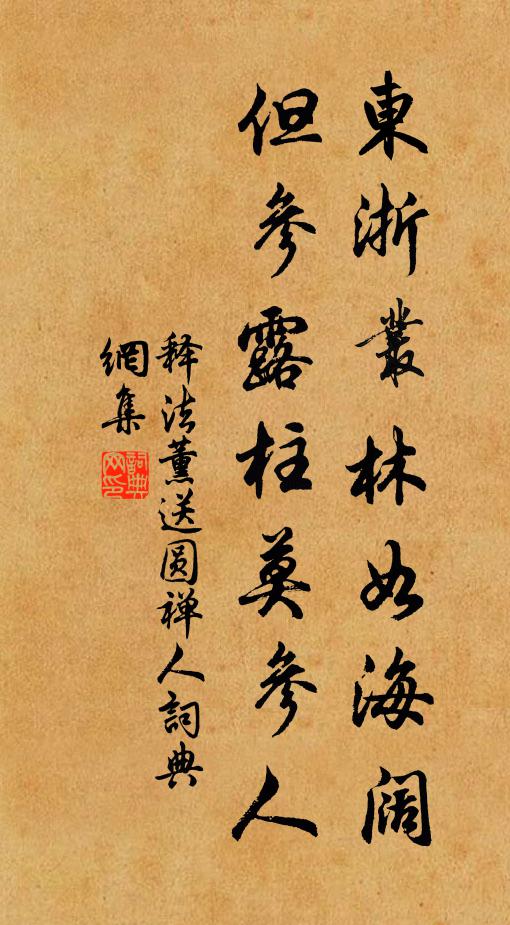 東浙叢林如海阔
但參露柱莫參人
释法薰送圆禅人詞典
網集
詞典
网印